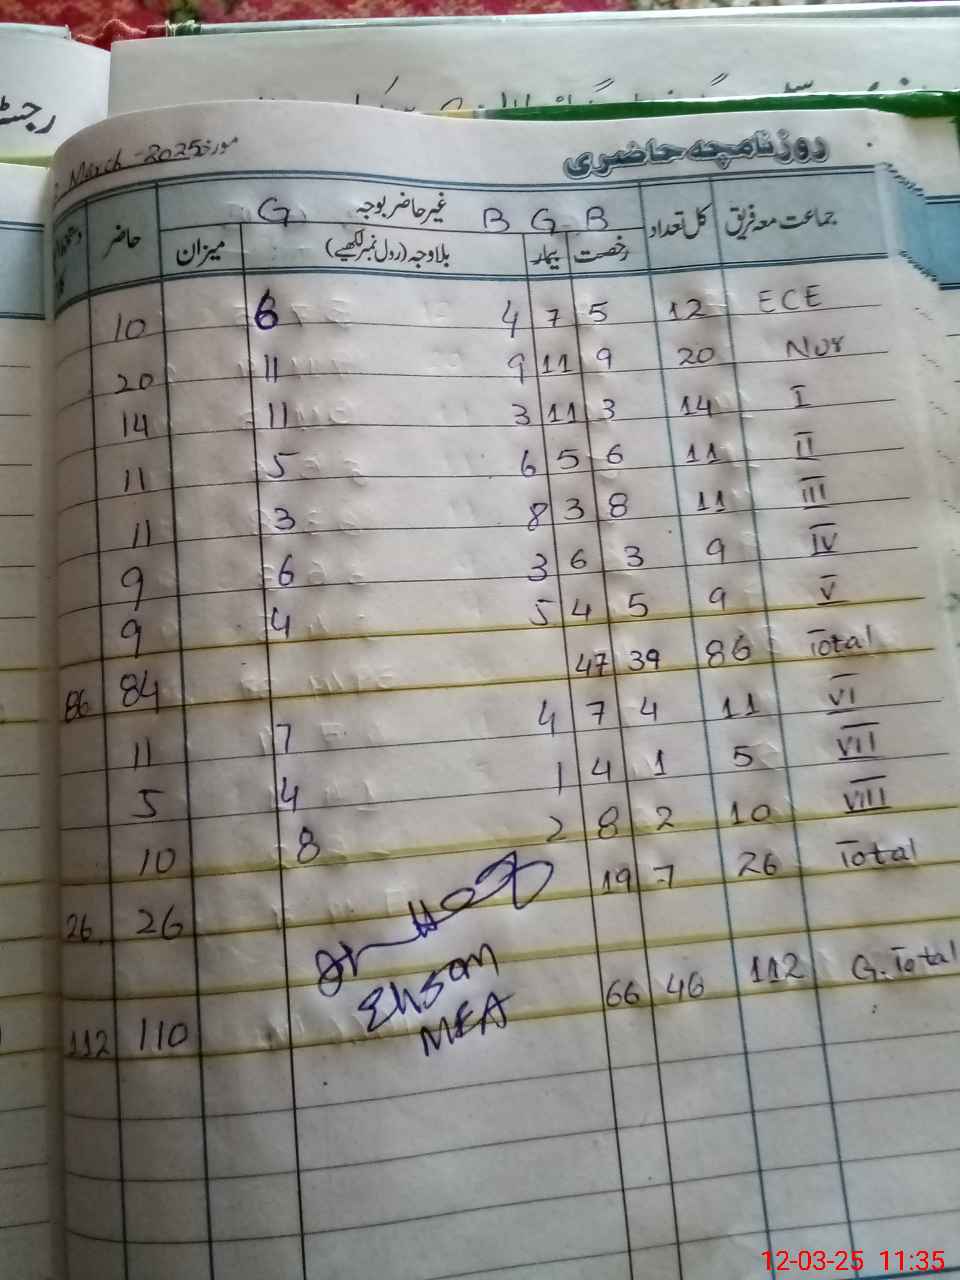 رجسٹ
روزنامچہ حاضری
مورخہ March - 2025
جماعت معہ فریق کل تعداد غیر حاضر بوجہ حاضر
B G B G
رخصت بیمار بلاوجہ (رول نمبر لکھیے) میزان
ECE 12 5 7 4 6 10
Nur 20 9 11 9 11 20
I 14 3 11 3 11 14
II 11 6 5 6 5 11
III 11 8 3 8 3 11
IV 9 3 6 3 6 9
V 9 5 4 5 4 9
Total 86 39 47 84 86
VI 11 4 7 4 7 11
VII 5 1 4 1 4 5
VIII 10 2 8 2 8 10
Total 26 7 19 26 26
G. Total 112 46 66 110 112
Ehsan
MEA
12-03-25 11:35